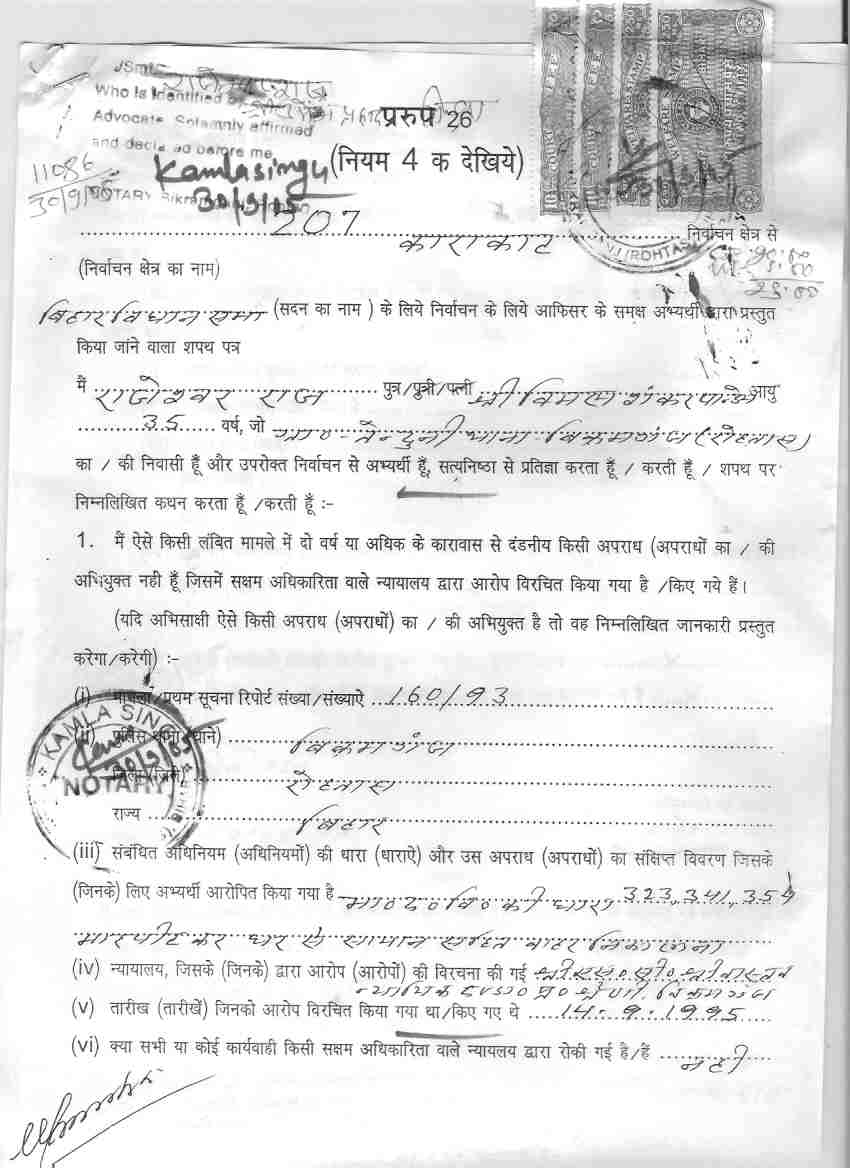 Who is Identified by
Advocate Solemnly affirmed
and declared before me
प्ररुप 26
Kamla Singh
(नियम 4 क देखिये)
11086
30/9/05
NOTARY
30/9/05
207 काराकाट निर्वाचन क्षेत्र से
(निर्वाचन क्षेत्र का नाम)
25.00
बिहार विधान सभा (सदन का नाम ) के लिये निर्वाचन के लिये आफिसर के समक्ष अभ्यर्थी द्वारा प्रस्तुत
किया जांने वाला शपथ पत्र
मैं राजेश्वर राज पुत्र/पुत्री/पत्नी श्री विमल शंकर पाण्डेय आयु
35 वर्ष, जो ग्रा०-तेन्दुनी थाना-बिक्रमगंज (रोहतास)
का / की निवासी हूँ और उपरोक्त निर्वाचन से अभ्यर्थी हूँ, सत्यनिष्ठा से प्रतिज्ञा करता हूँ / करती हूँ / शपथ पर
निम्नलिखित कथन करता हूँ /करती हूँ :-
1. मैं ऐसे किसी लंबित मामले में दो वर्ष या अधिक के कारावास से दंडनीय किसी अपराध (अपराधों का / की
अभियुक्त नही हूँ जिसमें सक्षम अधिकारिता वाले न्यायालय द्वारा आरोप विरचित किया गया है /किए गये हैं।
(यदि अभिसाक्षी ऐसे किसी अपराध (अपराधों) का / की अभियुक्त है तो वह निम्नलिखित जानकारी प्रस्तुत
करेगा/करेगी) :-
(i) मामला/प्रथम सूचना रिपोर्ट संख्या/संख्याऐ 160/93
(ii) पुलिस थाना (थाने) बिक्रमगंज
जिला (जिले) रोहतास
राज्य बिहार
KAMLA SINGH
NOTARY
(iii) संबंधित अधिनियम (अधिनियमों) की धारा (धाराऐ) और उस अपराध (अपराधों) का संक्षिप्त विवरण जिसके
(जिनके) लिए अभ्यर्थी आरोपित किया गया है भा०द०वि० की धारा 323, 341, 354
मारपीट कर घर से सामान सहित बाहर निकालना
(iv) न्यायालय, जिसके (जिनके) द्वारा आरोप (आरोपों) की विरचना की गई श्री एस० सी० श्रीवास्तव
न्यायिक दण्डा० प्र० श्रेणी, बिक्रमगंज
(v) तारीख (तारीखें) जिनको आरोप विरचित किया गया था/किए गए थे 14-9-1995
(vi) क्या सभी या कोई कार्यवाही किसी सक्षम अधिकारिता वाले न्यायलय द्वारा रोकी गई है/हैं नही